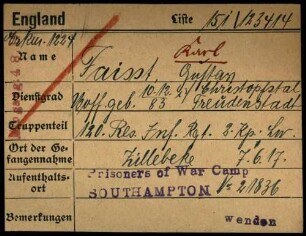 England
Liste 15 i/23414
Erkn. 1224
Name
Karl
Faisst, Gustav
Dienstgrad
10.12. Christopfstal
Uoff. geb. 83. Freudenstadt
Truppenteil
120. Res. Inf. Rgt. 3. Kp. Lw.
Ort der Gefangennahme
Zillebeke 7.6.17.
Aufenthaltsort
Prisoners of War Camp
SOUTHAMPTON 21836
Bemerkungen
Wenden